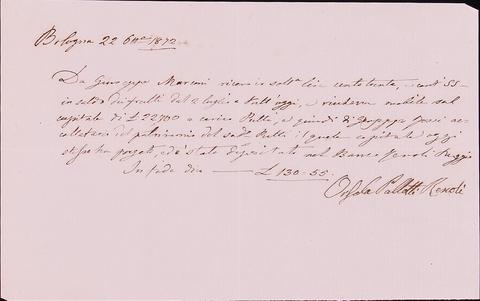 Bologna 22 6bre 1872
Da Giuseppe Marconi ricevo io sott.a lire cento trenta, e cent. 55
in saldo dei frutti dal 2 luglio a tutt'oggi, e ricchezza mobile sul
capitale di £ 22700 a carico Ratta, e quindi di Giuseppe
del patrimonio del sud.o Ratta il quale capitale oggi
stesso ha pagato, ed è stato depositato nel Banco Renoli Buggio
In fede dico £ 130.55.
Orsola Pallotti Renoli